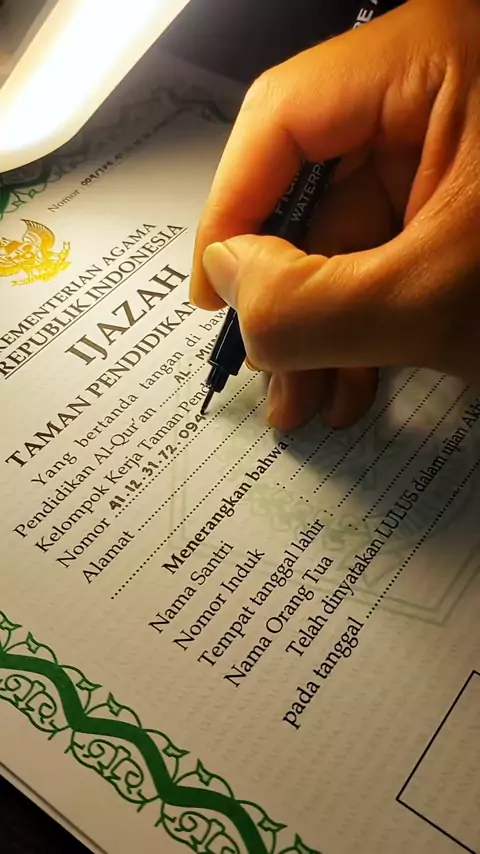 Nomor
KEMENTERIAN AGAMA
REPUBLIK INDONESIA
IJAZAH
TAMAN PENDIDIKAN
Yang bertanda tangan di
Pendidikan Al-Qur'an AL-
Kelompok Kerja Taman
Nomor 41.12.31.72.094
Alamat
Menerangkan bahwa
Nama Santri
Nomor Induk
Tempat tanggal lahir :
Nama Orang Tua
Telah dinyatakan LULUS dalam ujian
pada tanggal
WATERP